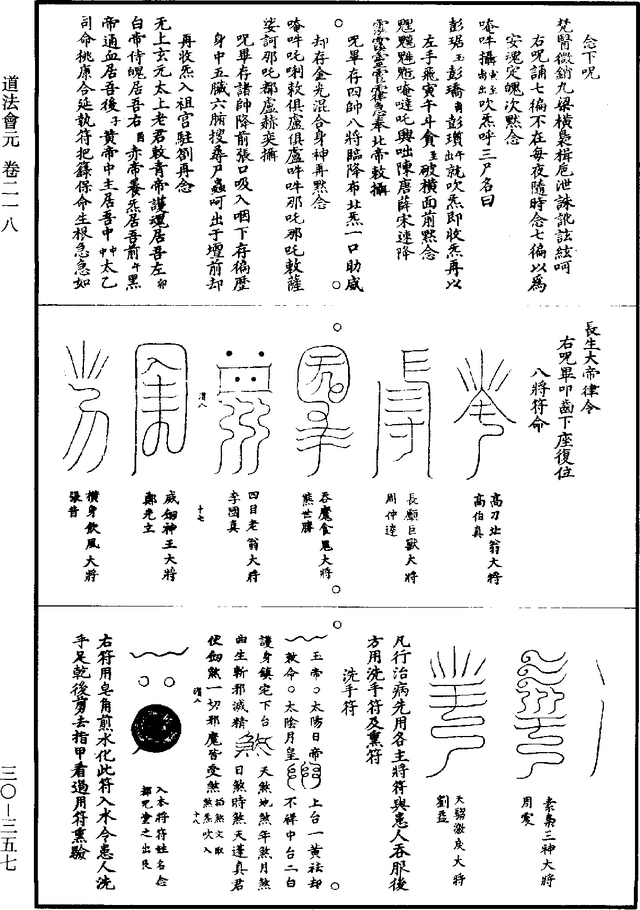 道法會元 卷二一八
三〇—三五七
念下呪
梵醫微銷九梁橫梟楫卮泄誅訛詃絃呵
右呪誦七徧不在每夜隨時念七徧以為
安魂定魄次黙念
唵吽攝
吹炁呼三尸名曰
彭琚
彭璸
就吹炁即收炁再以
左手飛寅午斗貪
橫面前黙念
唵噠吒興咄陳唐薛宋速降
奉北帝敕攝
呪畢存四帥八將臨降布北炁一口助威
却存金光混合身神再黙念
唵吽吒唎敕俱盧俱盧吽吽那吒那吒敕薩
娑訶那吒都盧赫奕攝
呪畢存諸帥降前張口吸入咽下存徧歷
身中五臟六腑搜尋尸蟲呵出于壇前却
再收炁入祖宮駐劄再念
无上玄元太上老君敕青帝護魂居吾左卯
白帝侍魄居吾右酉赤帝養炁居吾前午黑
帝通血居吾後子黃帝中主居吾中中太乙
司命桃康合延執符把籙保命生根急急如
長生大帝律令
右呪畢叩齒下座復位
八將符命
高刀北翁大將
高伯真
長顱巨獸大將
周仲逵
吞魔食鬼大將
熊世勝
四目老翁大將
李國真
渭八
十七
威劒神王大將
鄭先立
橫身飲風大將
張昔
素梟三神大將
周震
天騶激戾大將
劉益
凡行治病先用各主將符與患人吞服後
方用洗手符及熏符
洗手符
玉帝
太陽日帝
上台一黃祛却
敕命
太陰月皇
不祥中台二白
護身鎮定下台
天煞地煞年煞月煞
曲生斬邪滅精
日煞時煞天蓬真君
伏劒煞一切邪魔皆受煞
渭八
十八
入本將符姓名念
右符用皂角煎水化此符入水令患人洗
手足乾後剪去指甲看過用符熏驗